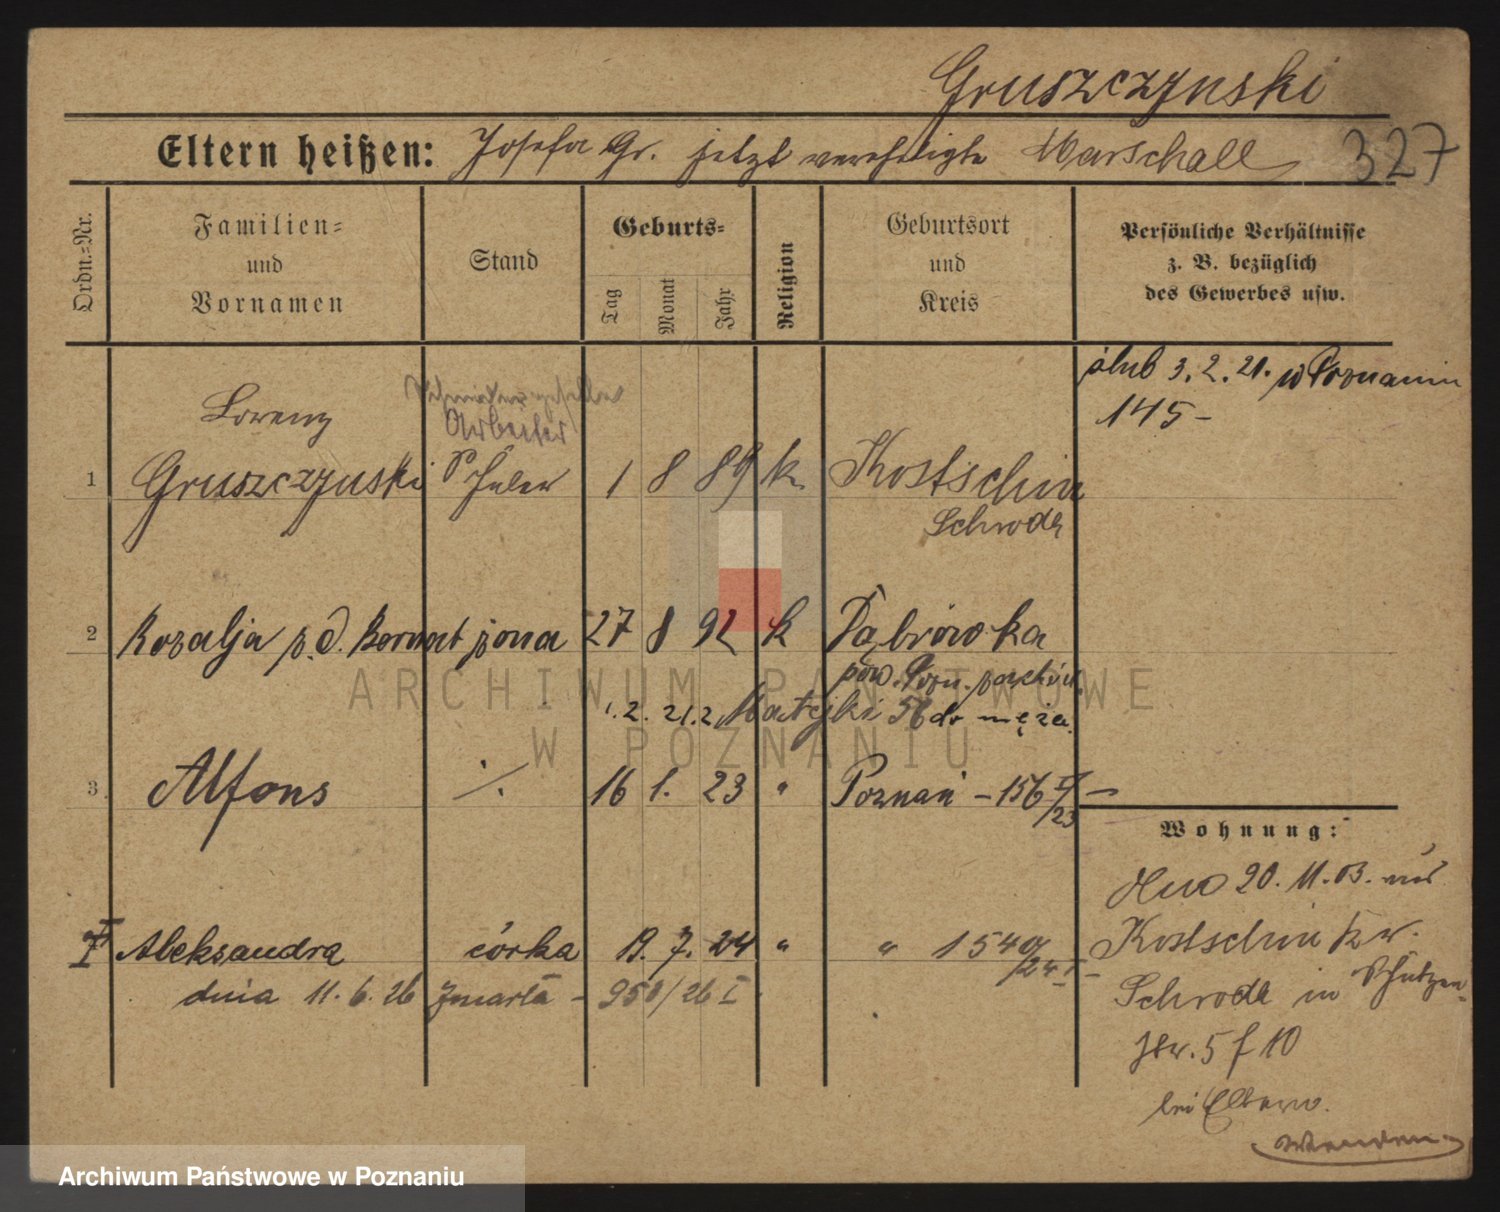 Gruszczynski
Eltern heißen: Josefa Gr. jetzt vereheligte Marschall 327
Ordn.=Nr.
Familien=
und
Vornamen
Stand
Geburts=
Tag
Monat
Jahr
Religion
Geburtsort
und
Kreis
Persönliche Verhältnisse
z. B. bezüglich
des Gewerbes usw.
ślub 3. 2. 21. w Poznaniu
145 -
Lorenz
Arbeiter
1 Gruszczynski Schüler 1 8 89 k. Kostschin
Schroda
2 Rozalja z. d. Kornat żona 27 8 92 k Dąbrówka
pow. Pozn. zachód.
1. 2. 21. z Matejki 56 do męża.
3 Alfons ./. 16 1. 23 " Poznań - 156 I/23 -
Wohnung:
Aleksandra córka 19. 7. 24 " " 1540/24 I -
dnia 11. 6. 26 zmarła - 950/26 I.
20. 11. 03. aus
Kostschin Kr.
Schroda in Schützen-
str. 5 f 10
bei Eltern.
Wenden
ARCHIWUM PAŃSTWOWE
W POZNANIU
Archiwum Państwowe w Poznaniu